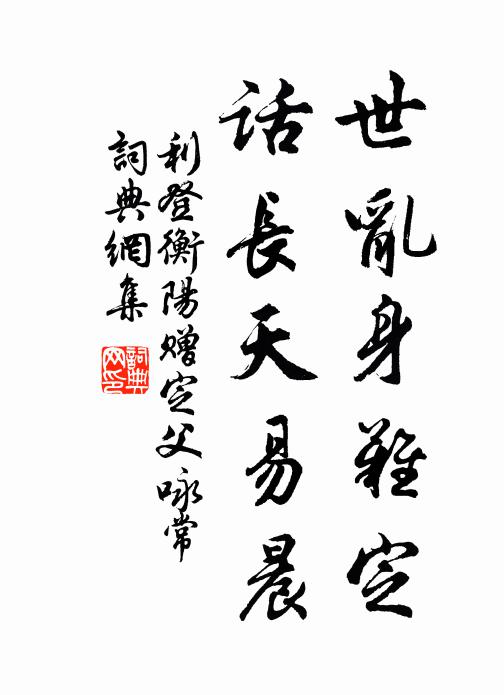 世亂身難定
话長天易晨
利登衡陽赠定父咏常
詞典網集
詞典网印